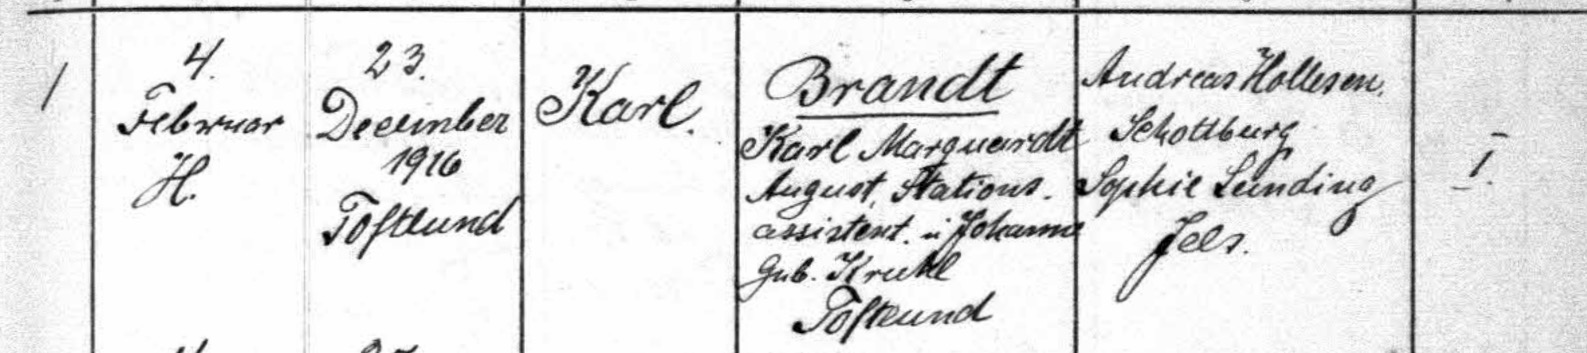 1
4.
Februar
H.
23.
December
1916
Toftlund
Karl.
Brandt
Karl Marquardt
August, Stations-
assistent. ü Johanne
Geb. Kruhl
Toftlund
Andreas Hollesen.
Schottburg
Sophie Lunding
Jels.
I.